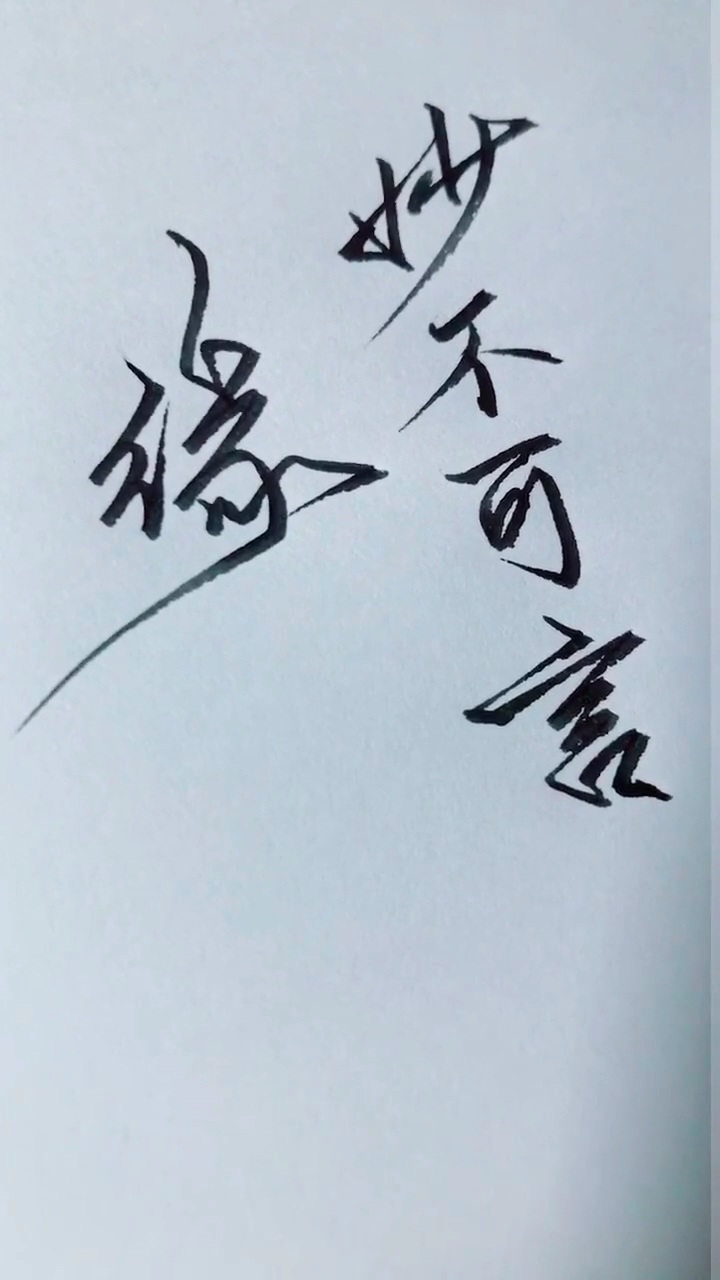 妙不可言
缘